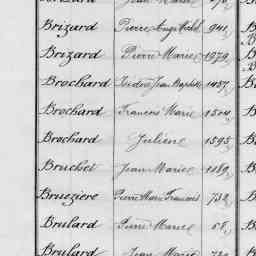 Brizard Pierre Ange Mahl 941
Brizard Pierre Marie 1979
Brochard Isidore Jean Baptiste 1457
Brochard Francois Marie 1504
Brochard Julien 1595
Bruchet Jean Marie 1189
Brueziere Pierre Marie Francois 732
Brulard Pierre Marie 58
Brulard Jean Marie